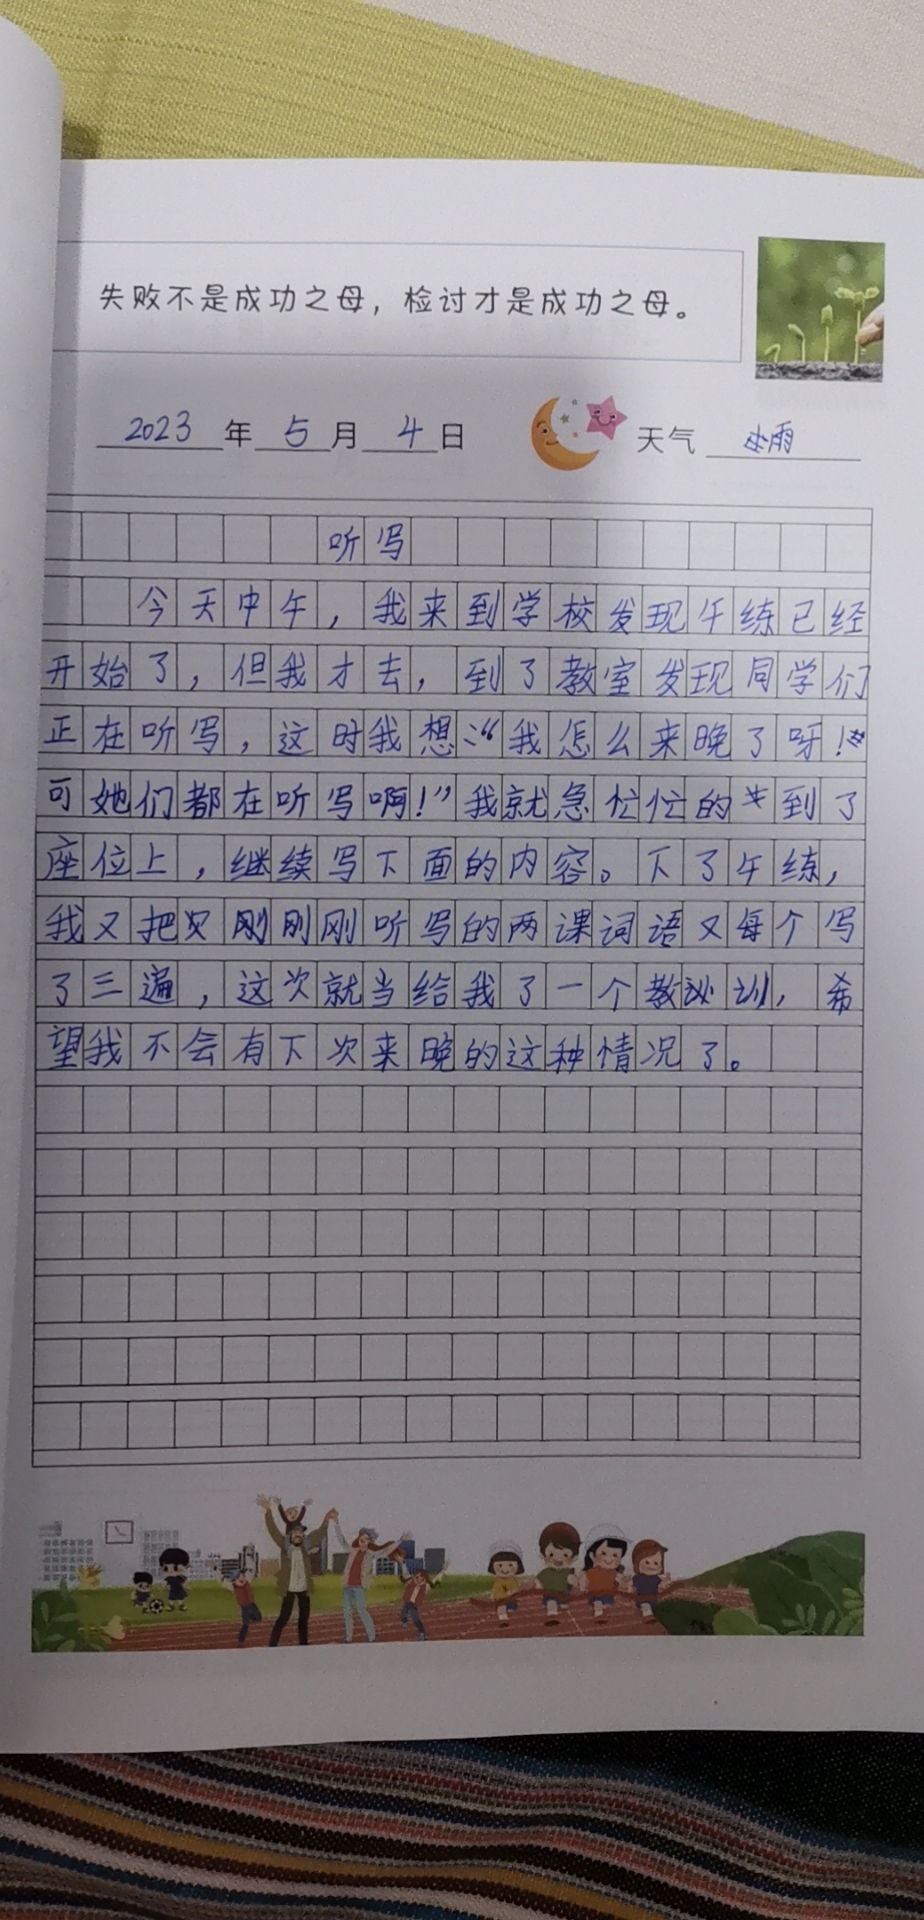 失败不是成功之母，检讨才是成功之母。
2023年5月4日 天气 小雨
听写
今天中午，我来到学校发现午练已经
开始了，但我才去，到了教室发现同学们
正在听写，这时我想：“我怎么来晚了呀！
可她们都在听写啊！”我就急忙忙的到了
座位上，继续写下面的内容。下了午练，
我又把刚刚刚听写的两课词语又每个写
了三遍，这次就当给我了一个教训，希
望我不会有下次来晚的这种情况了。